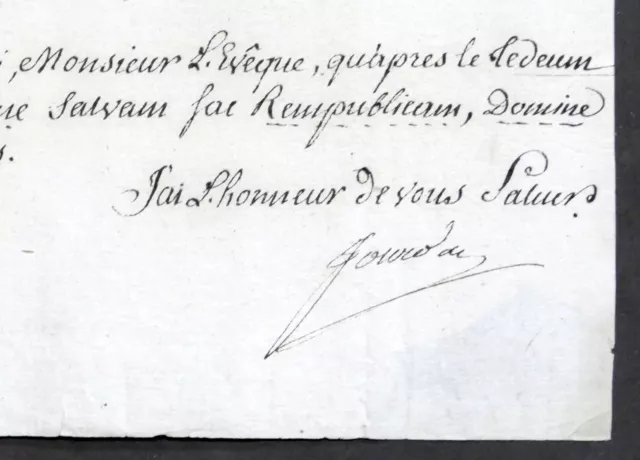 , Monsieur L'Evêque, qu'apres le Tedeum
ne Salvam fac Rempublicam, Domine
s.
J'ai L'honneur de vous Saluer
Jourdan